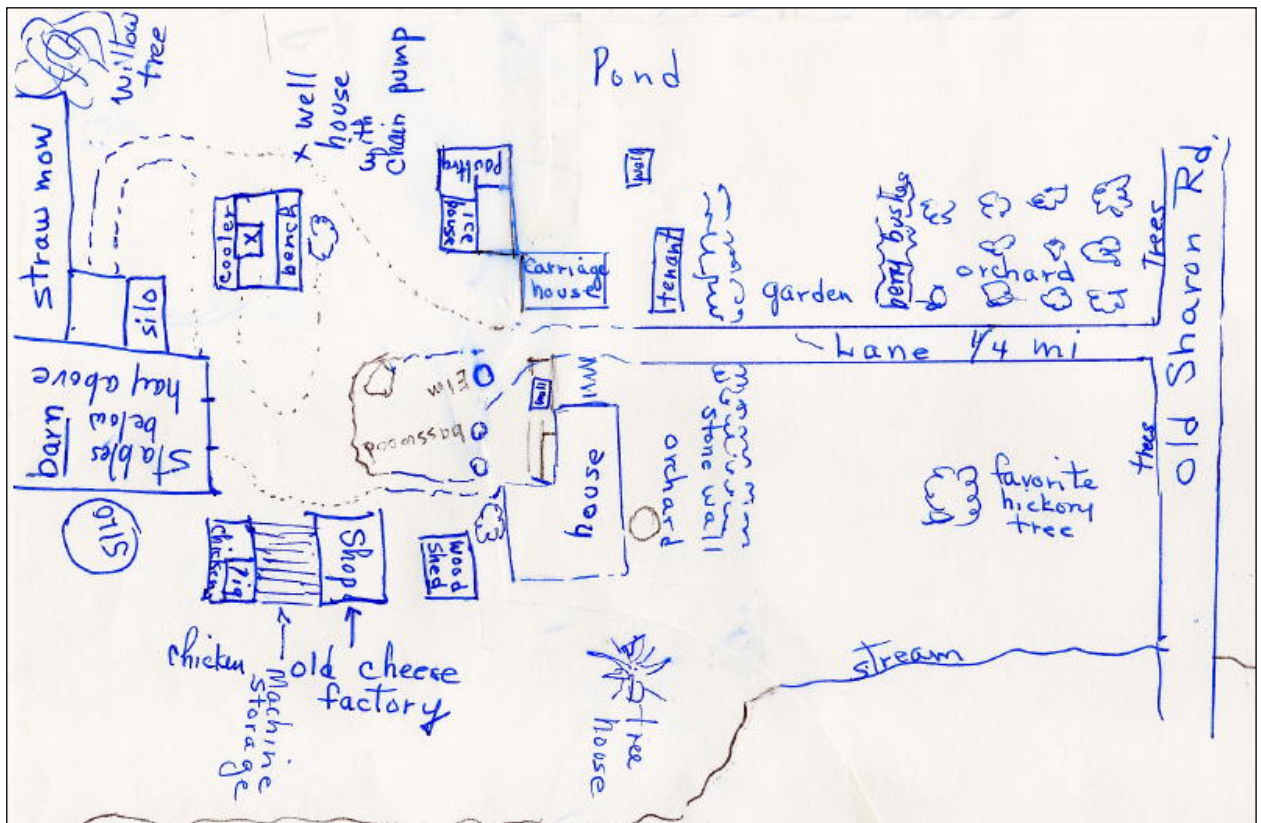 willow
tree
straw mow
silo
hay above
Stables
below
barn
Silo
cooler
X
bench
x well
house
with
chain pump
Poultry
ice
house
Carriage
house
Pond
well
tenant
garden
berry bushes
orchard
Trees
Old Sharon Rd.
Lane 1/4 mi
Elm
basswood
well
house
orchard
stone wall
trees
favorite
hickory
tree
chicken
Pig
Shop
wood
shed
chicken
Machine
storage
old cheese
factory
tree
house
stream